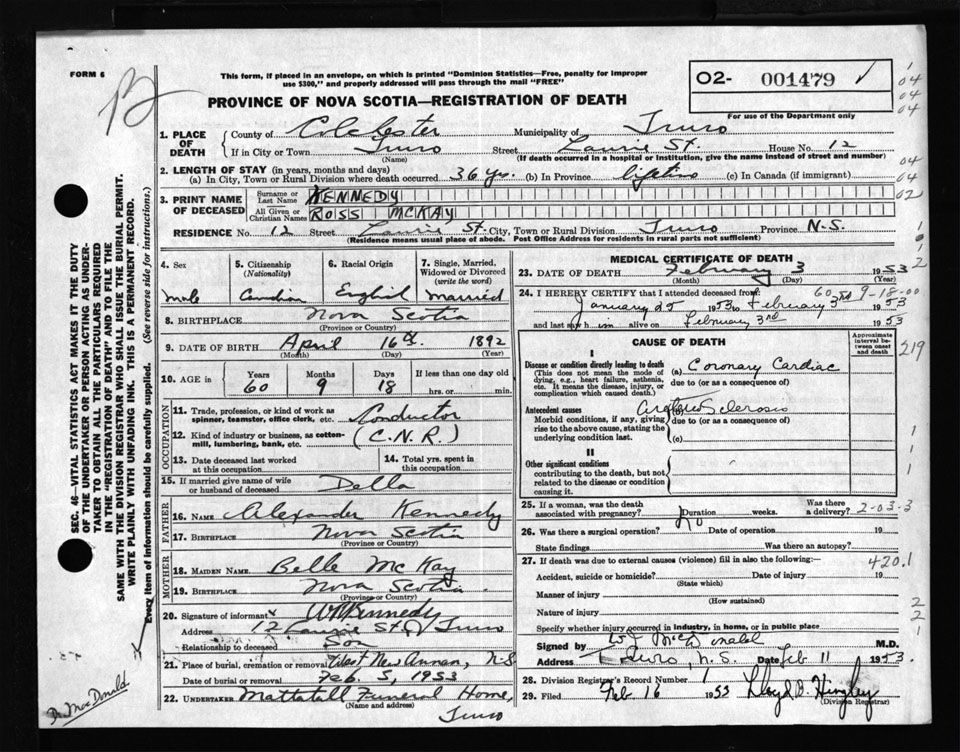 FORM 6
B
This form, if placed in an envelope, on which is printed "Dominion Statistics—Free, penalty for improper
use $300," and properly addressed will pass through the mail "FREE"
O2- 001479 ✓
For use of the Department only
PROVINCE OF NOVA SCOTIA—REGISTRATION OF DEATH
1. PLACE OF DEATH County of Colchester Municipality of Truro
If in City or Town Truro (Name) Street Laurie St. House No. 12
(If death occurred in a hospital or institution, give the name instead of street and number)
2. LENGTH OF STAY (in years, months and days)
(a) In City, Town or Rural Division where death occurred 36 yrs. (b) In Province lifetime (c) In Canada (if immigrant)
3. PRINT NAME OF DECEASED Surname or Last Name KENNEDY
All Given or Christian Names ROSS MCKAY
RESIDENCE No. 12 Street Laurie St. City, Town or Rural Division Truro Province N-S.
(Residence means usual place of abode. Post Office Address for residents in rural parts not sufficient)
4. Sex male
5. Citizenship (Nationality) Canadian
6. Racial Origin English
7. Single, Married, Widowed or Divorced (write the word) married
8. BIRTHPLACE Nova Scotia
(Province or Country)
9. DATE OF BIRTH April 16th. 1892
(Month) (Day) (Year)
10. AGE in Years 60 Months 9 Days 18 If less than one day old hrs. or min.
OCCUPATION
11. Trade, profession, or kind of work as spinner, teamster, office clerk, etc. Conductor
12. Kind of industry or business, as cotton-mill, lumbering, bank, etc. (C.N.R.)
13. Date deceased last worked at this occupation
14. Total yrs. spent in this occupation
15. If married give name of wife or husband of deceased Della
FATHER
16. NAME Alexander Kennedy
17. BIRTHPLACE Nova Scotia
(Province or Country)
MOTHER
18. MAIDEN NAME Belle McKay
19. BIRTHPLACE Nova Scotia.
(Province or Country)
20. Signature of informant x Kennedy
Address 12 Laurie St. Truro
Relationship to deceased Son
21. Place of burial, cremation or removal West New Annan, N-S
Date of burial or removal Feb. 5, 1953
22. UNDERTAKER Mattatall Funeral Home,
(Name and address)
Truro
MEDICAL CERTIFICATE OF DEATH
23. DATE OF DEATH February 3 1953
(Month) (Day)
60 9-18-00
24. I HEREBY CERTIFY that I attended deceased from
January 25 1953 to February 3rd 1953
and last saw him alive on February 3rd 1953
CAUSE OF DEATH
Approximate interval between onset and death
I
Disease or condition directly leading to death
(This does not mean the mode of dying, e.g., heart failure, asthenia, etc. It means the disease, injury, or complication which caused death.)
(a) Coronary Cardiac
due to (or as a consequence of)
Antecedent causes
Morbid conditions, if any, giving rise to the above cause, stating the underlying condition last.
Arterio Sclerosis
due to (or as a consequence of)
(c)
II
Other significant conditions
contributing to the death, but not related to the disease or condition causing it.
25. If a woman, was the death associated with pregnancy? Duration weeks. Was there a delivery? 2-03-3
26. Was there a surgical operation? No Date of operation 19
State findings Was there an autopsy?
27. If death was due to external causes (violence) fill in also the following:— 420.1
Accident, suicide or homicide? Date of injury 19
(State which)
Manner of injury
(How sustained)
Nature of injury
Specify whether injury occurred in industry, in home, or in public place
Signed by McDonald M.D.
Address Truro, N.S. Date Feb 11 1953.
28. Division Registrar's Record Number 1
29. Filed Feb. 16 1953 Lloyd D. Hingley
(Division Registrar)
1
04
04
04
04
04
02
2
219
1
1
1
2
2
SEC. 46—VITAL STATISTICS ACT MAKES IT THE DUTY
OF THE UNDERTAKER OR PERSON ACTING AS UNDER-
TAKER TO OBTAIN ALL THE PARTICULARS REQUIRED
IN THE "REGISTRATION OF DEATH" AND TO FILE THE
SAME WITH THE DIVISION REGISTRAR WHO SHALL ISSUE THE BURIAL PERMIT.
WRITE PLAINLY WITH UNFADING INK. THIS IS A PERMANENT RECORD.
Every item of information should be carefully supplied. (See reverse side for instructions.)
x
Dr. MacDonald